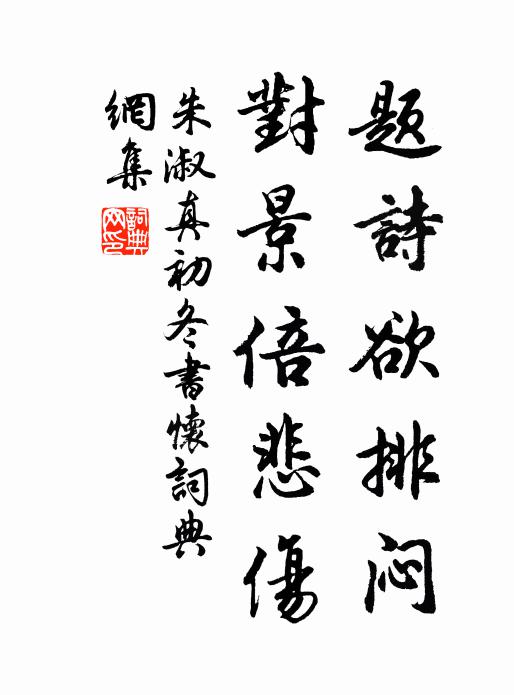 题詩欲排闷
對景倍悲傷
朱淑真初冬書懷詞典
網集
詞典網印